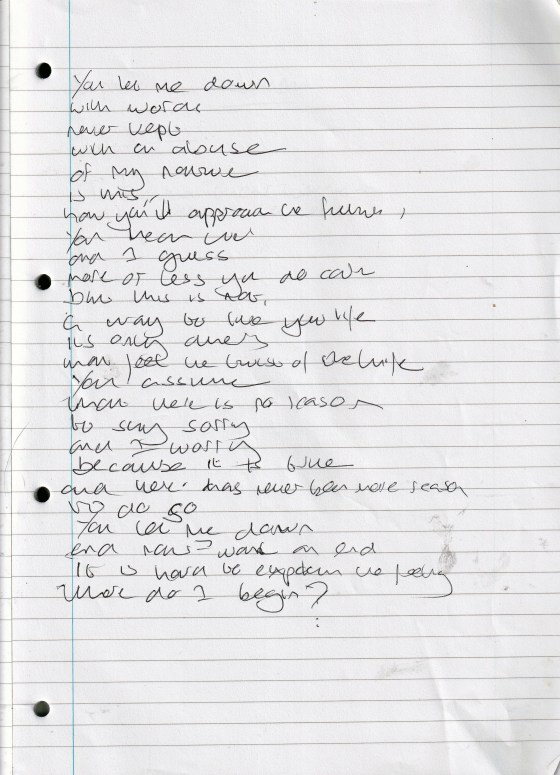 You let me down
with words
never kept
with an abuse
of my
is this
how you'll approach the future,
You hear me
and I guess
more or less you do care
but this is not,
a way to live your life
its only
feel the of
You assume
that there is no reason
to say sorry
and I worry
because it is true
and there has never been more reason
to do so
You let me down
and want an end
It is hard to explain the feeling
Where do I begin?